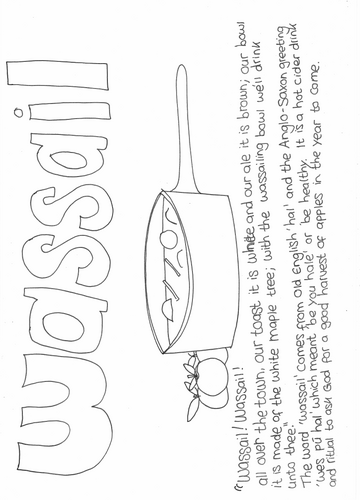 wassail
"Wassail! Wassail!
all over the town, our toast it is white and our ale it is brown; our bowl
it is made of the white maple tree; with the wassailing bowl we'll drink
unto thee."
The word 'wassail' comes from Old English 'hal' and the Anglo-Saxon greeting
'wes pú hal' which meant 'be you hale' or 'be healthy. It is a hot cider drink
and ritual to ask God for a good harvest of apples in the year to come.